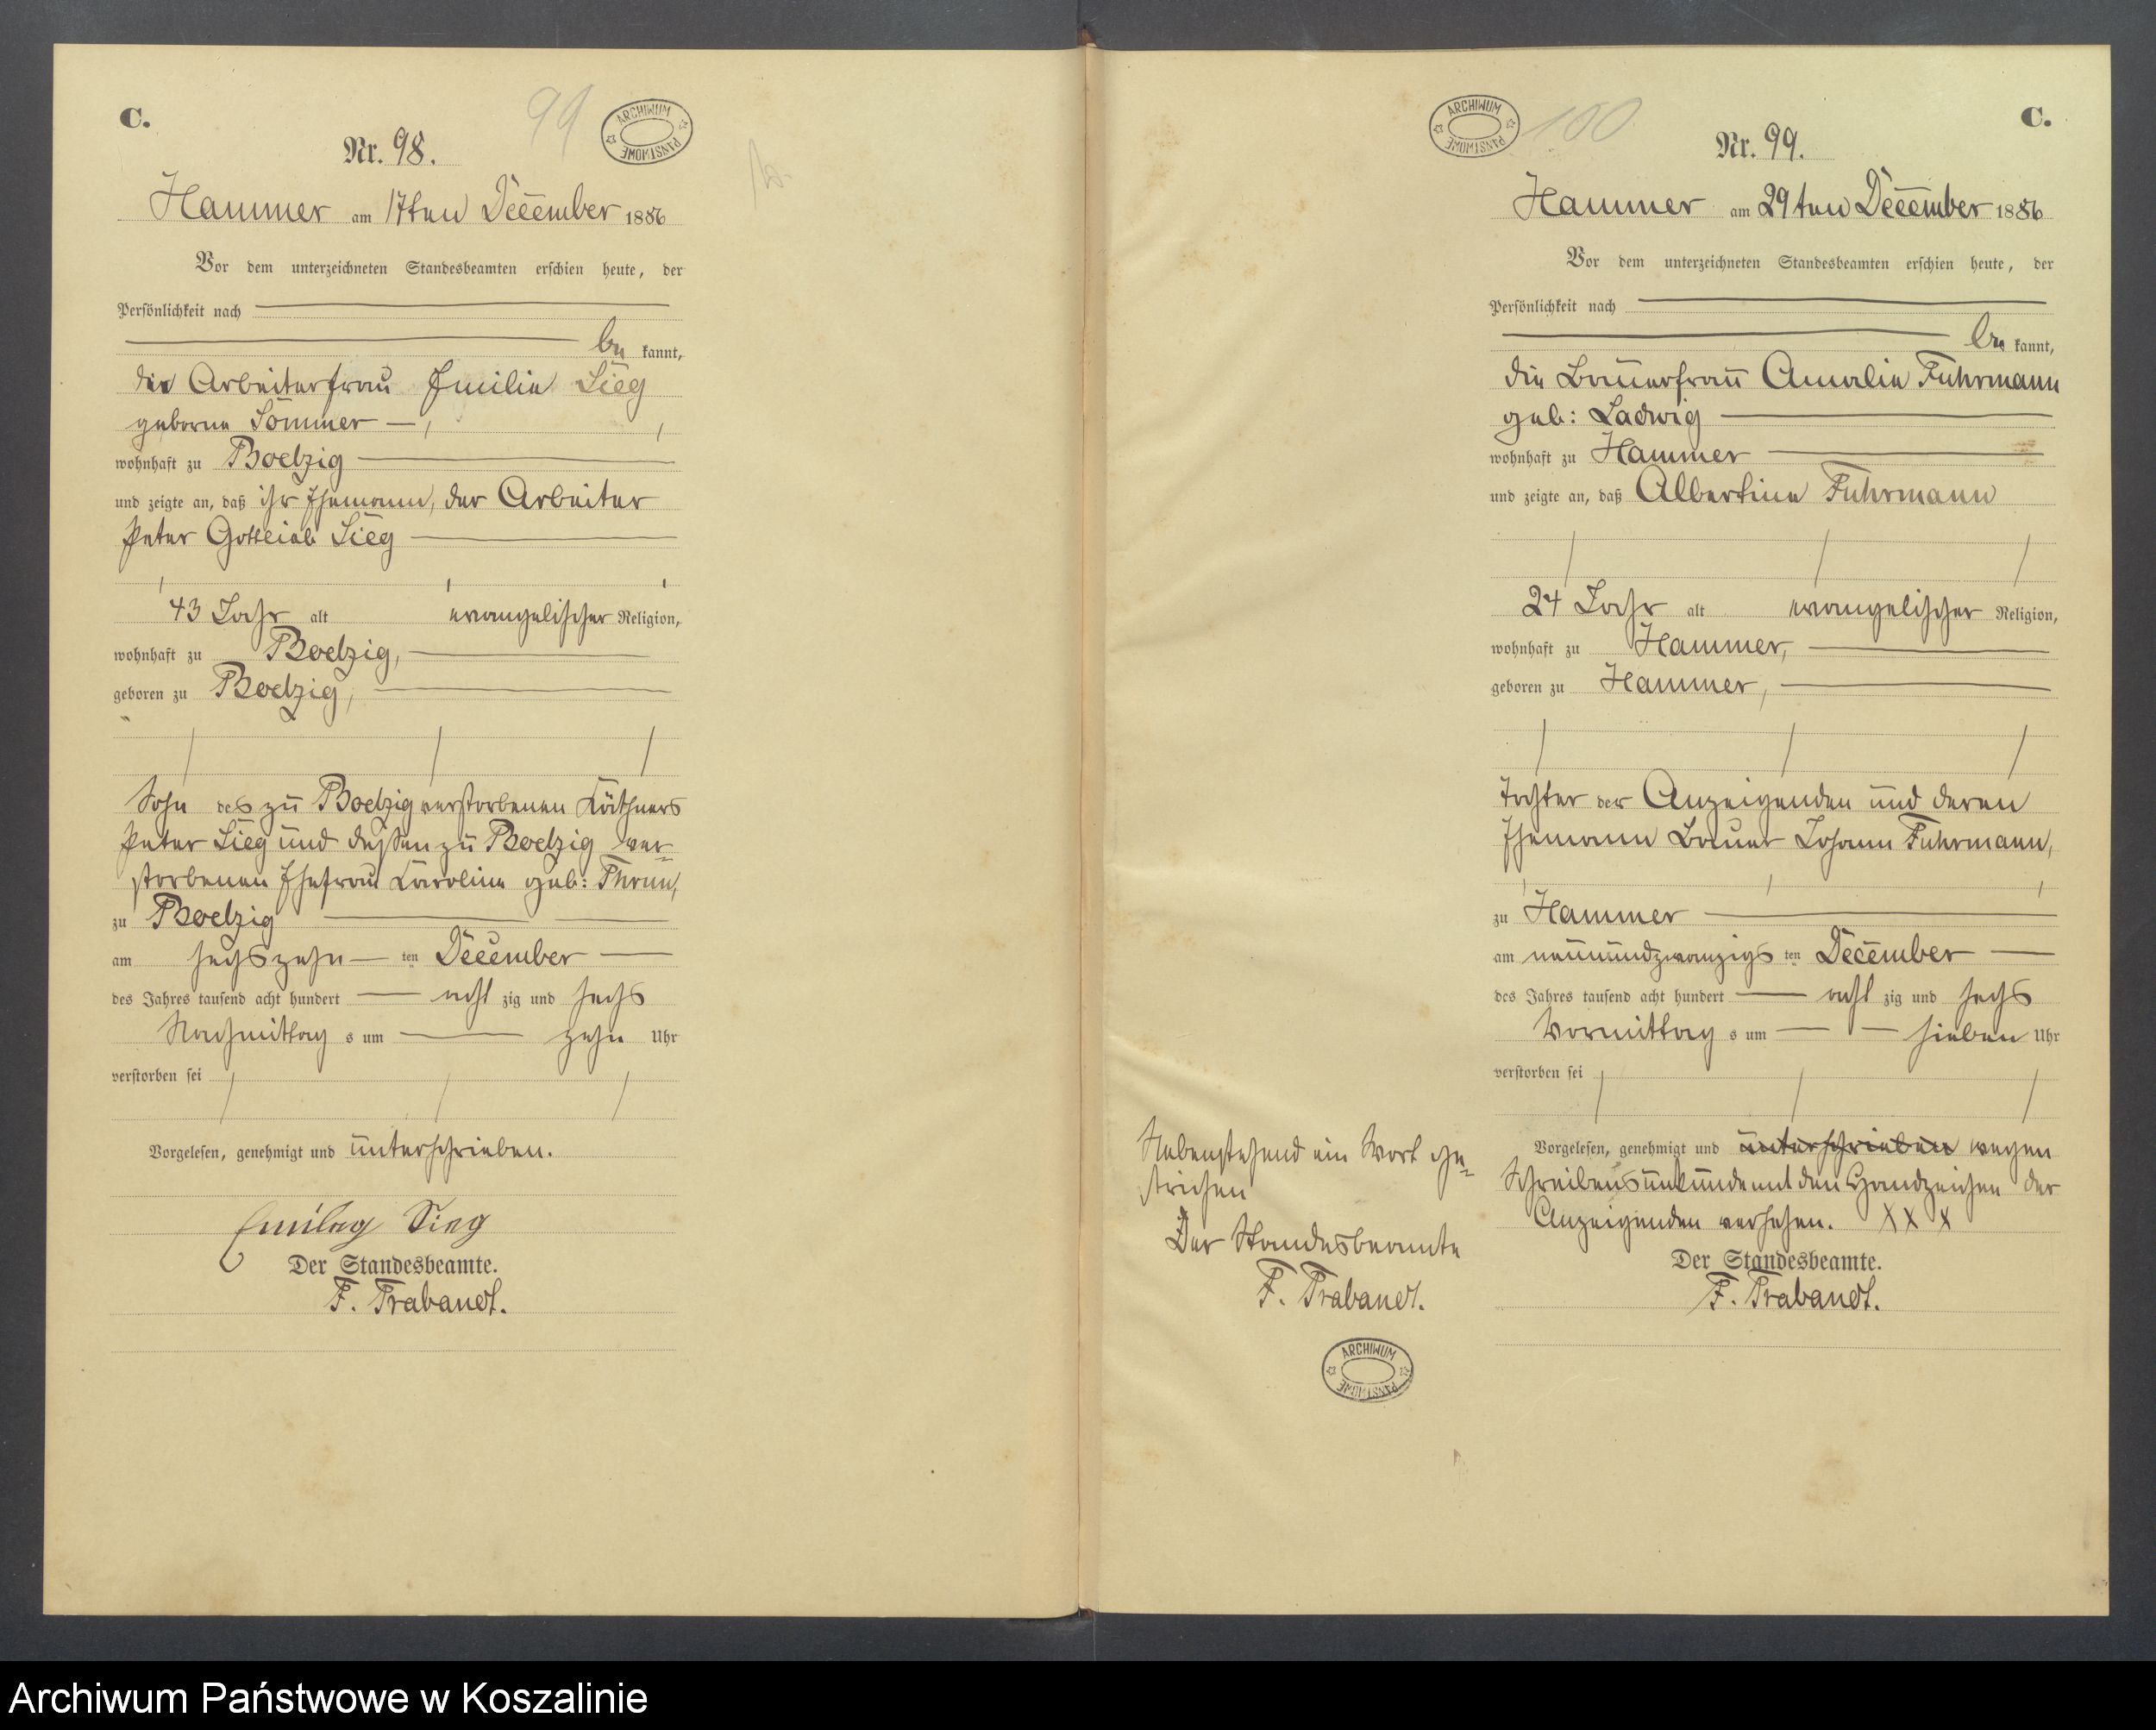 C.
99
ARCHIWUM PAŃSTWOWE
Nr. 98.
Hammer am 17ten December 1886
Vor dem unterzeichneten Standesbeamten erschien heute, der
Persönlichkeit nach
be kannt,
die Arbeiterfrau Emilie Sieg
geborne Sommer
wohnhaft zu Boelzig
und zeigte an, daß ihr Ehemann, der Arbeiter
Peter Gottlieb Sieg
43 Jahr alt evangelischer Religion,
wohnhaft zu Boelzig,
geboren zu Boelzig,
Sohn des zu Boelzig verstorbenen Käthners
Peter Sieg und dessen zu Boelzig ver-
storbenen Ehefrau Caroline geb: Thrun,
zu Boelzig
am sechszehn ten December
des Jahres tausend acht hundert acht zig und sechs
Nachmittag s um zehn Uhr
verstorben sei
Vorgelesen, genehmigt und unterschrieben.
Sieg
Der Standesbeamte.
F. Trabandt.
ARCHIWUM PAŃSTWOWE
100
C.
Nr. 99.
Hammer am 29ten December 1886
Vor dem unterzeichneten Standesbeamten erschien heute, der
Persönlichkeit nach
be kannt,
die Bauerfrau Amalie Fuhrmann
geb: Ladwig
wohnhaft zu Hammer
und zeigte an, daß Albertine Fuhrmann
24 Jahr alt evangelischer Religion,
wohnhaft zu Hammer,
geboren zu Hammer,
Tochter der Anzeigenden und deren
Ehemann Bauer Johann Fuhrmann,
zu Hammer
am neunundzwanzigs ten December
des Jahres tausend acht hundert acht zig und sechs
Vormittag s um sieben Uhr
verstorben sei
Vorgelesen, genehmigt und unterschrieben wegen
Schreibensunkunde mit den Handzeichen der
Anzeigenden versehen. X X X
Der Standesbeamte.
F. Trabandt.
Nebenstehend ein Wort ge-
strichen
Der Standesbeamte
F. Trabandt.
ARCHIWUM PAŃSTWOWE
Archiwum Państwowe w Koszalinie